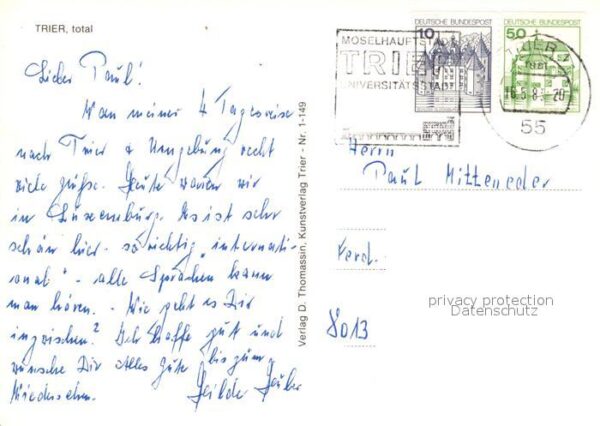 TRIER, total
Lieber Paul!
Von meiner 4 Tagesreise
nach Trier & Umgebung recht
viele Grüße. Heute waren wir
in Luxemburg. Es ist sehr
schön hier - so richtig "internati-
onal" - alle Sprachen kann
man hören. - Wie geht es Dir
inzwischen? Ich hoffe gut und
wünsche Dir alles Gute bis zum
Wiedersehen.
Verlag D. Thomassin, Kunstverlag Trier - Nr. 1-149
DEUTSCHE BUNDESPOST
10
DEUTSCHE BUNDESPOST
50
MOSELHAUPTSTADT
TRIER
UNIVERSITÄTSSTADT
TRIER
55
Herrn
Paul Mitteneder
8013
privacy protection
Datenschutz